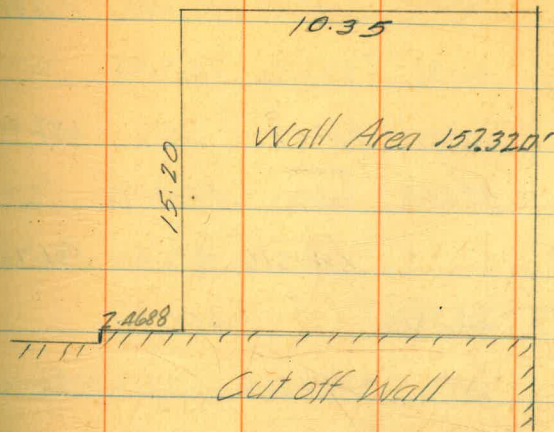 10.35
Wall Area 157.320
15.20
2.4688
Cut off Wall